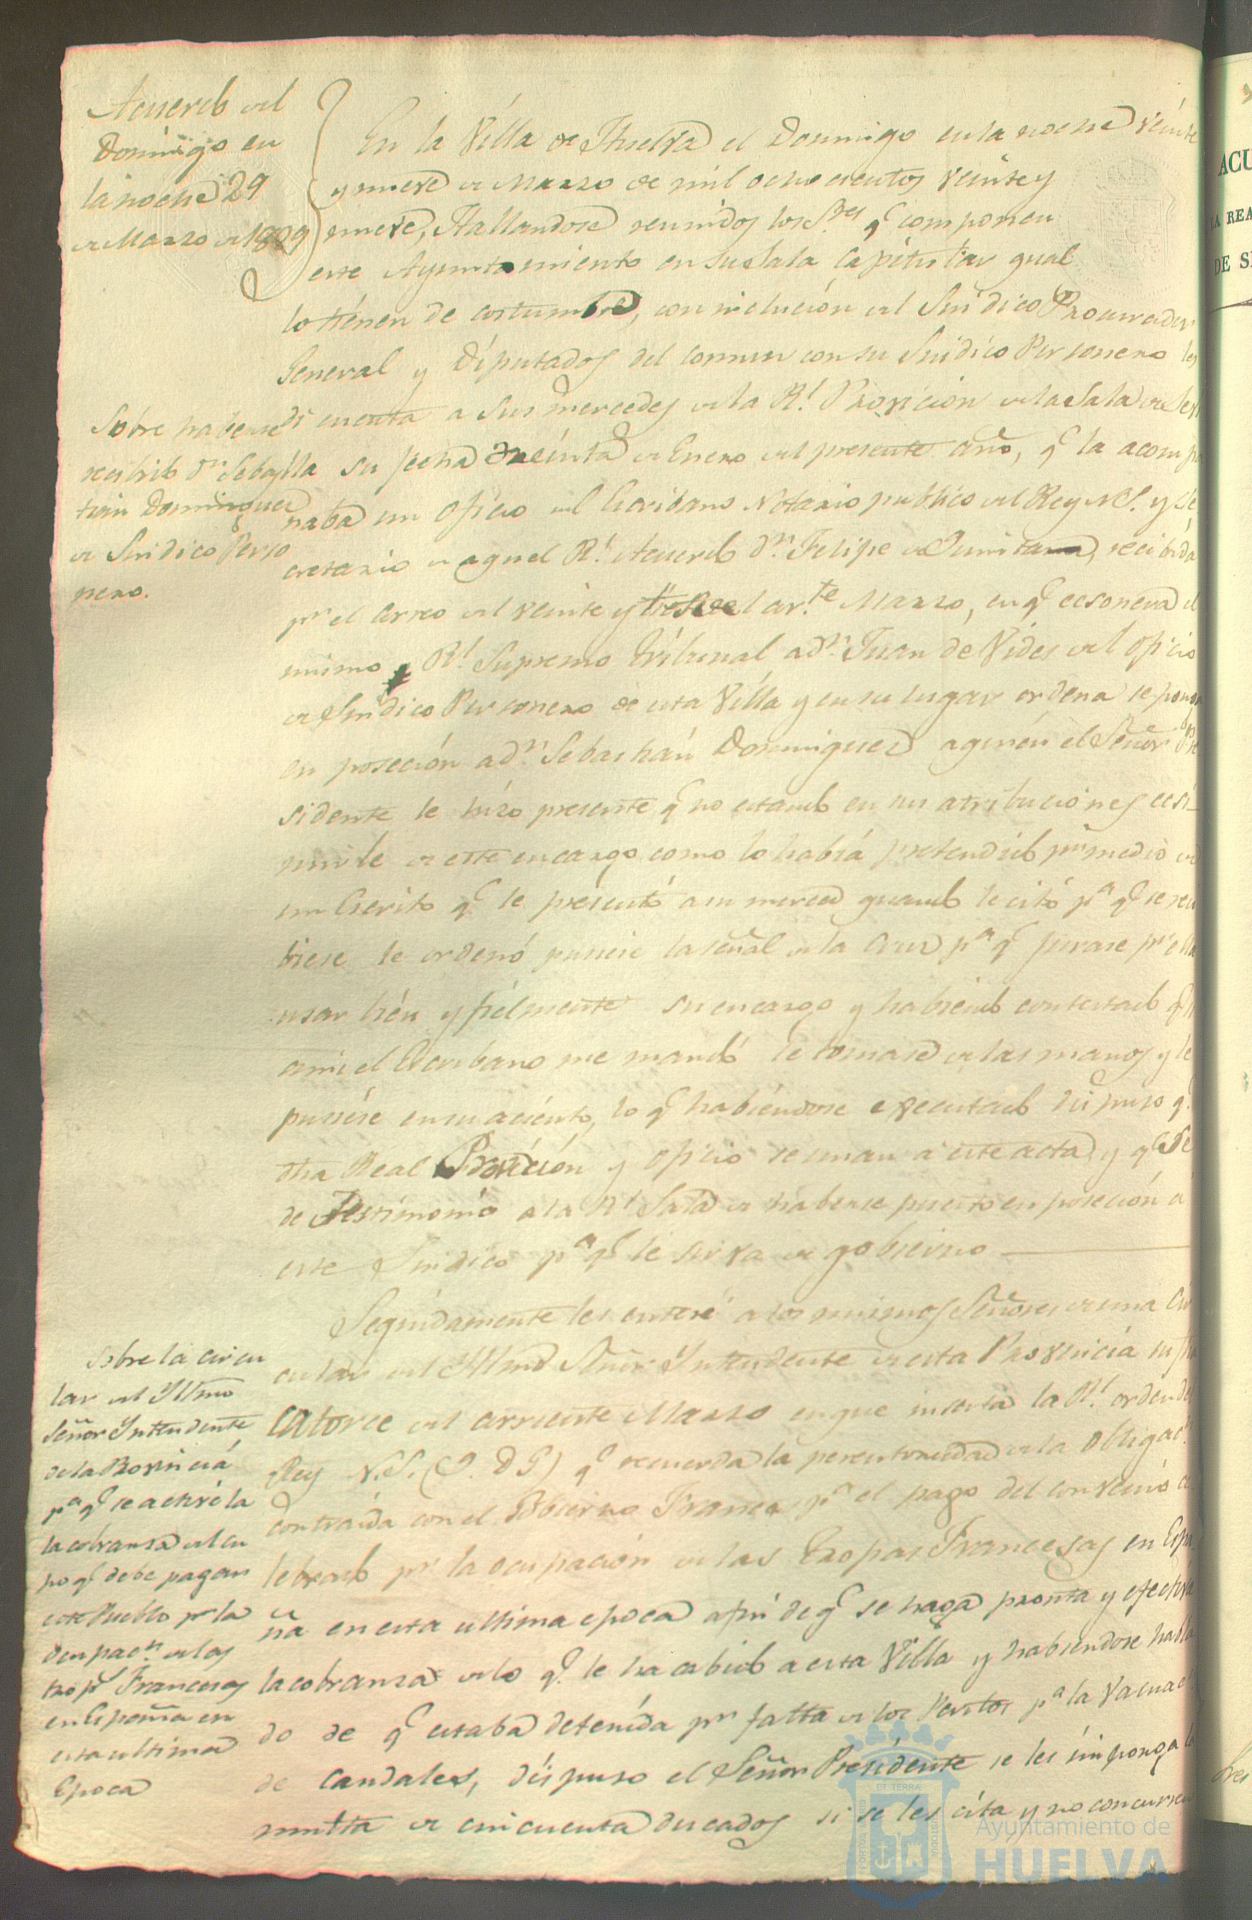 Acuerdo del
Domingo en
la noche 29
de Marzo de 1829
En la Villa de Huelva el Domingo en la noche veinte
y nueve de Marzo de mil ochocientos veinte y
nueve, Hallandose reunidos los Sres. q.e componen
este Ayuntamiento en su Sala Capitular qual
lo tiénen de costumbre, con inclución del Sindico Procurador
General y Diputados del comun con su Sindico Personero les
di cuenta a sus mercedes de la Rl. Provición de la Sala de
lla su fecha treinta de Enero del presente año, q.e la acompa
ñaba un oficio del Escribano Notario publico del Rey N.S. y Se
cretario de aquel Rl. Acuerdo Dn. Felipe de Quintana, recibida
pr. el correo del veinte y tres del corr.te Marzo, en q.e ecsonera el
mismo Rl. Supremo Tribunal a Dn. Juan de Vides del oficio
de Sindico Personero de esta Villa y en su lugar ordena se ponga
en poseción a Dn. Sebastián Dominguez aquién el Señor Pre
sidente le hizo presente q.e no estando en sus atribuciónes ecsi
mirle de este encargo como lo habiá pretendido pr. medio de
un Escrito q.e le presentó a su merced quando le citó p.a q.e se reci
biese le ordenó pusiese la señal de la Cruz p.a q.e jurase pr. ella
usar bién y fielmente su encargo y habiendo contestado q.e
ami el Escribano me mandó le tomase de las manos y le
pusiése en su aciento, lo q.e habiéndose executado dispuso q.e
dha Real Provición y oficio se unan a este acta y q.e se
de Testimonio a la Rl. Sala de haberse puesto en poseción á
este Sindico p.a q.e le sirva de gobierno
Sobre haberse
recibido Dn. Sebas
tián Dominguez
de Sindico Perso
nero.
Seguidamente les enteré a los mismos Señores de una Cir
cular del Yltmo Señor Yntendente de esta Provincia su fha
catorce del corriente Marzo en que inserta la Rl. orden del
Rey N.S. (Q. D. G) q.e recuerda la perentoriedad de la obligac.n
contraida con el Gobierno Frances p.a el pago del convenio ce
lebrado pr. la ocupación de las Tropas Francesas en Espa
ña en esta ultima epoca afin de q.e se haga pronta y efectiva
la cobranza de lo q.e le ha cabido a esta Villa y habiendose habla
do de q.e estaba detenida pr. falta de los Peritos p.a la
de caudales, dispuso el Señor Presidente se les imponga la
multa de cincuenta ducados si se les cita y no concurren
Sobre la circu
lar del Yltmo
Señor Yntendente
de la Provincia
p.a q.e se active la
la cobranza del cu
po q.e debe pagar
este Pueblo pr. la
ocupac.n de las
trop.s Francesas
en España en
esta ultima
Epoca
ACU
LA REA
DE S
Ayuntamiento de
HUELVA